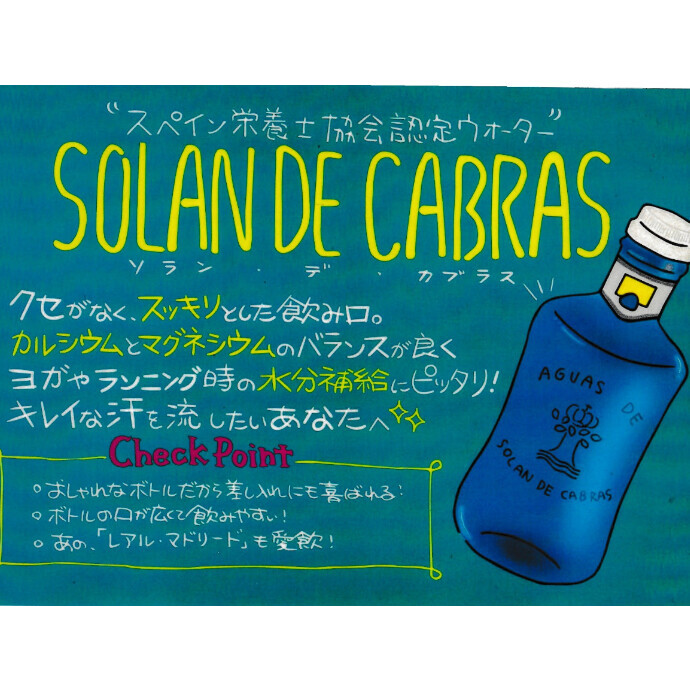 "スペイン栄養士協会認定ウォーター"
SOLAN DE CABRAS
ソラン・デ・カブラス
クセがなく、スッキリとした飲み口。
カルシウムとマグネシウムのバランスが良く
ヨガやランニング時の水分補給にピッタリ!
キレイな汗を流したいあなたへ
Check Point
○おしゃれなボトルだから差し入れにも喜ばれる!
○ボトルの口が広くて飲みやすい!
○あの、「レアル・マドリード」も愛飲!
AGUAS DE
SOLAN DE CABRAS